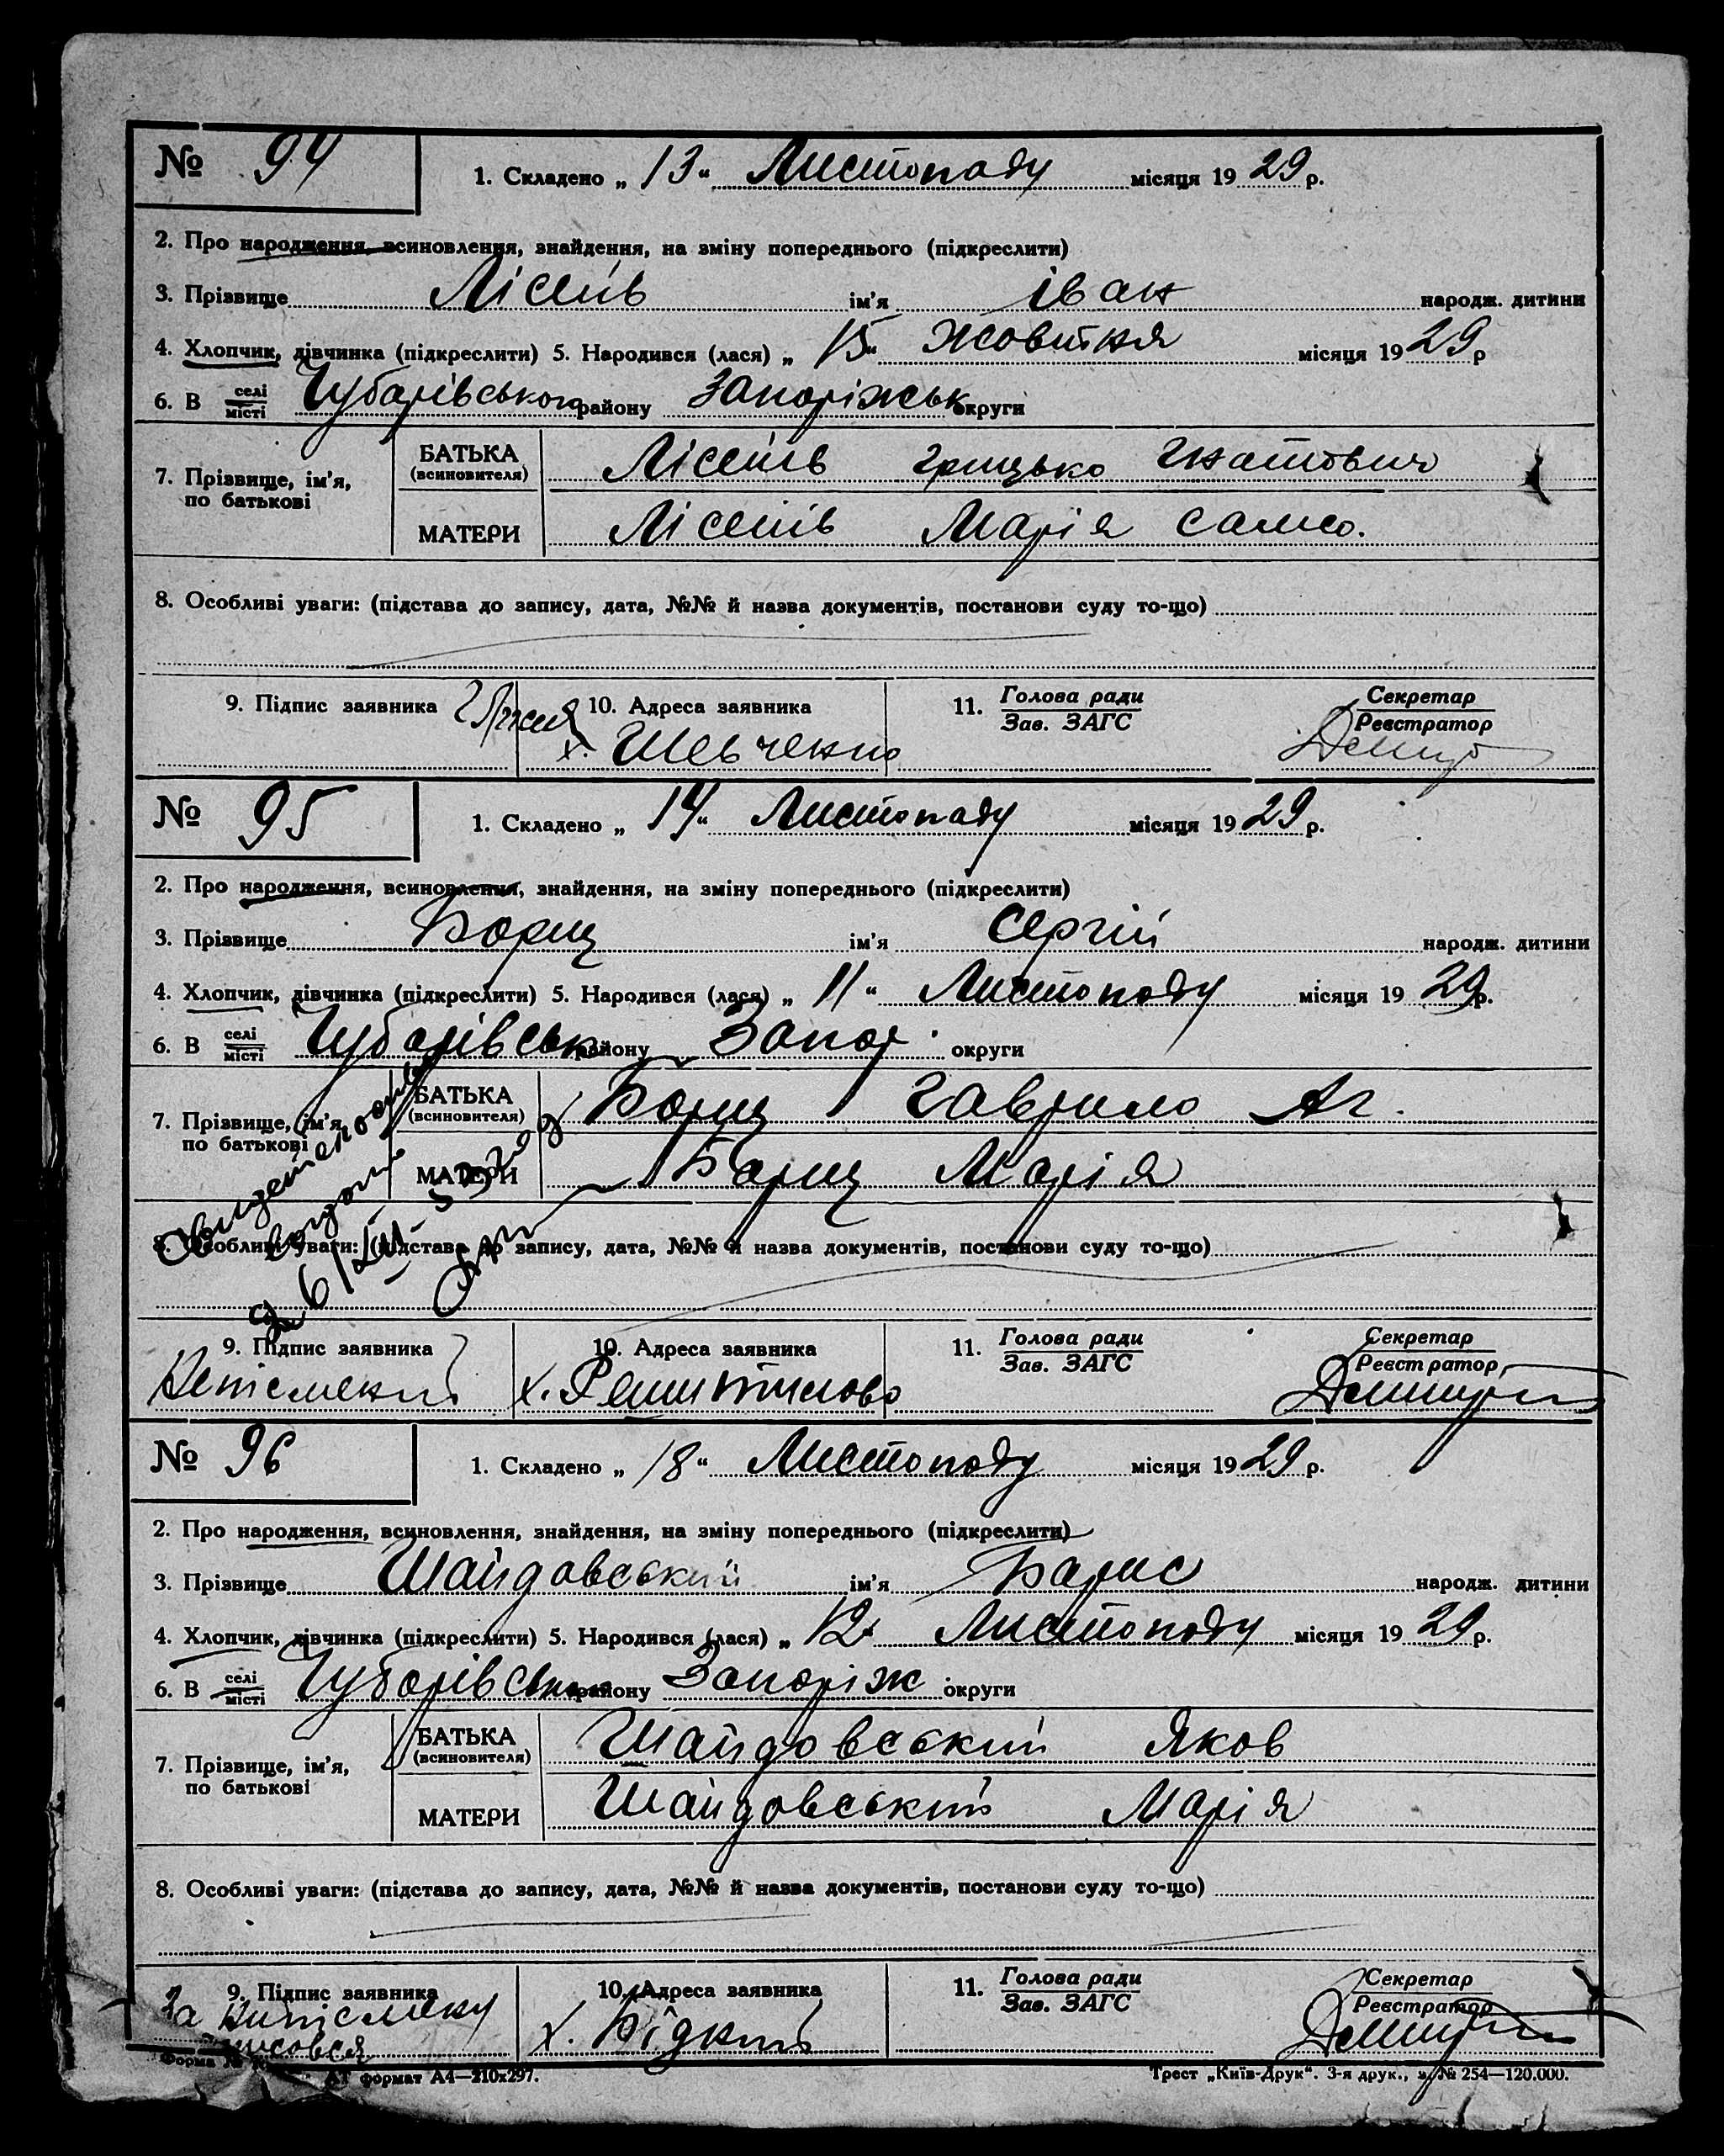 № 94
1. Складено „13“ Листопаду місяця 1929 р.
2. Про народження, всиновлення, знайдення, на зміну попереднього (підкреслити)
3. Прізвище Лісеків ім'я Іван народж. дитини
4. Хлопчик, дівчинка (підкреслити) 5. Народився (лася) „15“ Жовтня місяця 1929 р
6. В селі місті Чубарівського району Запоріжськ округи
7. Прізвище, ім'я, по батькові
БАТЬКА (всиновителя) Грицько Гнатович
МАТЕРИ Марія
8. Особливі уваги: (підстава до запису, дата, №№ й назва документів, постанови суду то-що)
9. Підпис заявника
10. Адреса заявника х. Шевченко
11. Голова ради Зав. ЗАГС
Секретар Реєстратор
№ 95
1. Складено „14“ Листопаду місяця 1929 р.
2. Про народження, всиновлення, знайдення, на зміну попереднього (підкреслити)
3. Прізвище Борщ ім'я Сергій народж. дитини
4. Хлопчик, дівчинка (підкреслити) 5. Народився (лася) „11“ Листопаду місяця 1929 р.
6. В селі місті Чубарівськ району Запор. округи
7. Прізвище, ім'я, по батькові
БАТЬКА (всиновителя) Борщ Гаврило Аг.
МАТЕРИ Борщ Марія
8. Особливі уваги: (підстава до запису, дата, №№ й назва документів, постанови суду то-що)
9. Підпис заявника
10. Адреса заявника х. Решитилово
11. Голова ради Зав. ЗАГС
Секретар Реєстратор
№ 96
1. Складено „18“ Листопаду місяця 1929 р.
2. Про народження, всиновлення, знайдення, на зміну попереднього (підкреслити)
3. Прізвище Шайдовський ім'я Барис народж. дитини
4. Хлопчик, дівчинка (підкреслити) 5. Народився (лася) „12“ Листопаду місяця 1929 р.
6. В селі місті Чубарівськ району Запоріж округи
7. Прізвище, ім'я, по батькові
БАТЬКА (всиновителя) Шайдовський Яков
МАТЕРИ Шайдовський Марія
8. Особливі уваги: (підстава до запису, дата, №№ й назва документів, постанови суду то-що)
9. Підпис заявника
10. Адреса заявника х.
11. Голова ради Зав. ЗАГС
Секретар Реєстратор
Форма № АТ формат А4—210х297.
Трест „Київ-Друк“. 3-я друк., з. № 254—120.000.